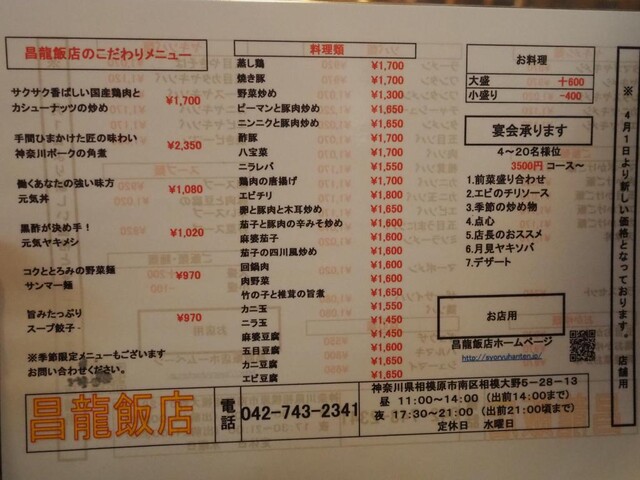 昌龍飯店のこだわりメニュー
サクサク香ばしい国産鶏肉と
カシューナッツの炒め ¥1,700
手間ひまかけた匠の味わい
神奈川ポークの角煮 ¥2,350
働くあなたの強い味方
元気丼 ¥1,080
黒酢が決め手!
元気ヤキメシ ¥1,020
コクととろみの野菜麺
サンマー麺 ¥970
旨みたっぷり
スープ餃子 ¥970
※季節限定メニューもございます
お問い合わせください。
料理類
蒸し鶏 ¥1,700
焼き豚 ¥1,700
野菜炒め ¥1,300
ピーマンと豚肉炒め ¥1,650
ニンニクと豚肉炒め ¥1,650
酢豚 ¥1,700
八宝菜 ¥1,700
ニラレバ ¥1,550
鶏肉の唐揚げ ¥1,700
エビチリ ¥1,800
卵と豚肉と木耳炒め ¥1,650
茄子と豚肉の辛みそ炒め ¥1,600
麻婆茄子 ¥1,600
茄子の四川風炒め ¥1,600
回鍋肉 ¥1,600
肉野菜 ¥1,600
竹の子と椎茸の旨煮 ¥1,650
カニ玉 ¥1,550
ニラ玉 ¥1,450
麻婆豆腐 ¥1,450
五目豆腐 ¥1,650
カニ豆腐 ¥1,650
エビ豆腐 ¥1,650
お料理
大盛 +600
小盛り -400
宴会承ります
4～20名様位
3500円 コース～
1.前菜盛り合わせ
2.エビのチリソース
3.季節の炒め物
4.点心
5.店長のおススメ
6.月見ヤキソバ
7.デザート
お店用
昌龍飯店ホームページ
http://syoryuhanten.jp/
※ 4月1日より新しい価格となっております。 店舗用
昌龍飯店
電話
042-743-2341
神奈川県相模原市南区相模大野5-28-13
昼 11:00～14:00 (出前14:00まで)
夜 17:30～21:00 (出前21:00頃まで)
定休日 水曜日